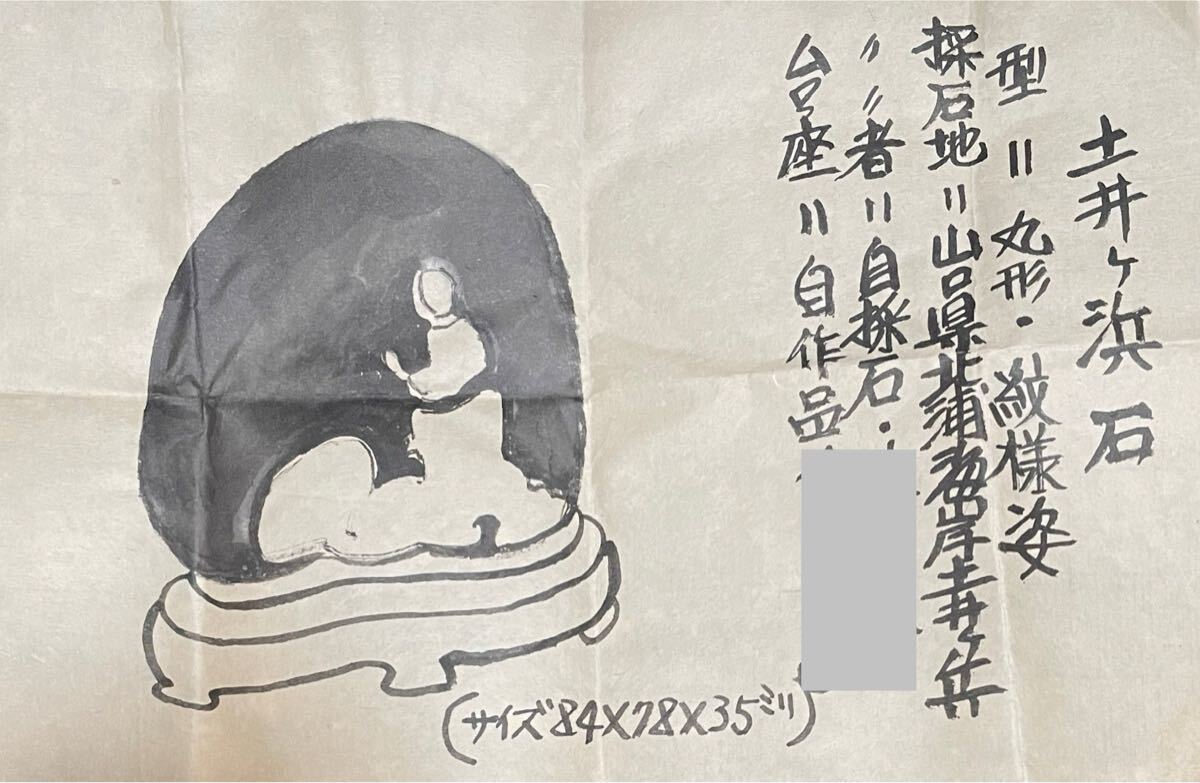 土井ヶ浜石
型＝丸形・紋様姿
採石地＝山口県北浦海岸土井ヶ浜
〃〃者＝自採石・
台座＝自作品
(サイズ84×78×35ミリ)